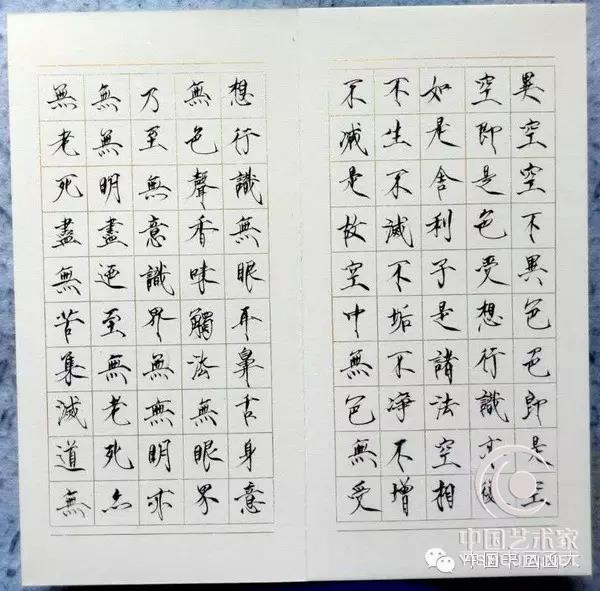 異空空不異色色即是空
空即是色受想行識亦復
如是舍利子是諸法空相
不生不滅不垢不净不增
不减是故空中無色無受
想行識無眼耳鼻舌身意
無色聲香味觸法無眼界
乃至無意識界無無明亦
無無明盡迺至無老死亦
無老死盡無苦集滅道無
中国艺术家